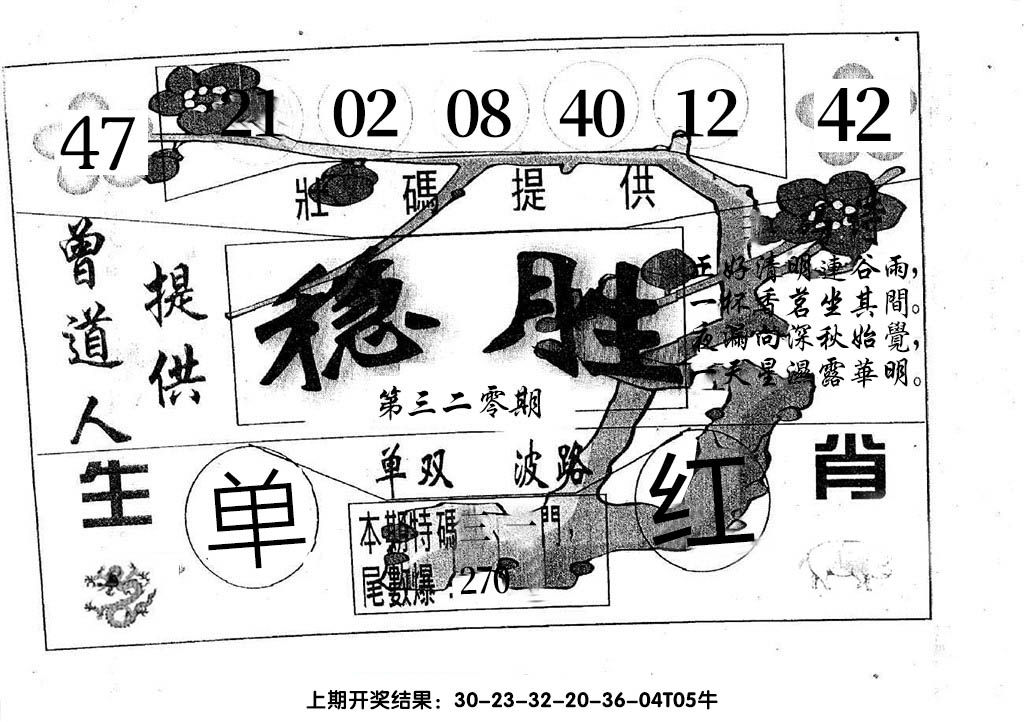 47 21 02 08 40 12 42
壯碼提供
曾道人
提供
稳胜
第三二零期
特
正好清明連谷雨,
一杯香茗坐其間。
夜滿向深秋始覺,
一天星温露華明。
单双 波路
生
单
红
肖
本期特碼三、一門,
尾數爆:270
上期开奖结果:30-23-32-20-36-04T05牛